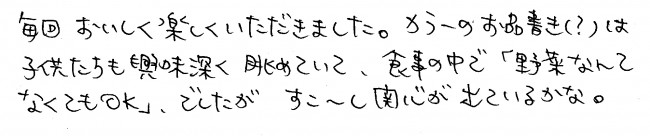 毎回 おいしく楽しくいただきました。カラーのお品書き(?)は
子供たちも興味深く眺めていて、食事の中で「野菜なんて
なくてもOK」、でしたが すこ〜し関心が出ているかな。